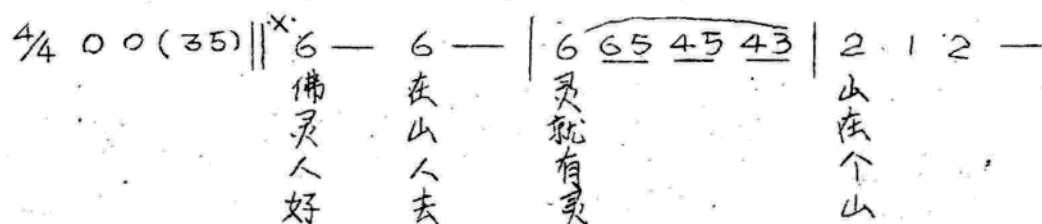 4/4 0 0 (35) ‖ 6 — 6 — | 6 65 45 43 | 2 1 2 —
佛 在 灵 山
灵 山 就 在
人 人 有 个
好 去 灵 山